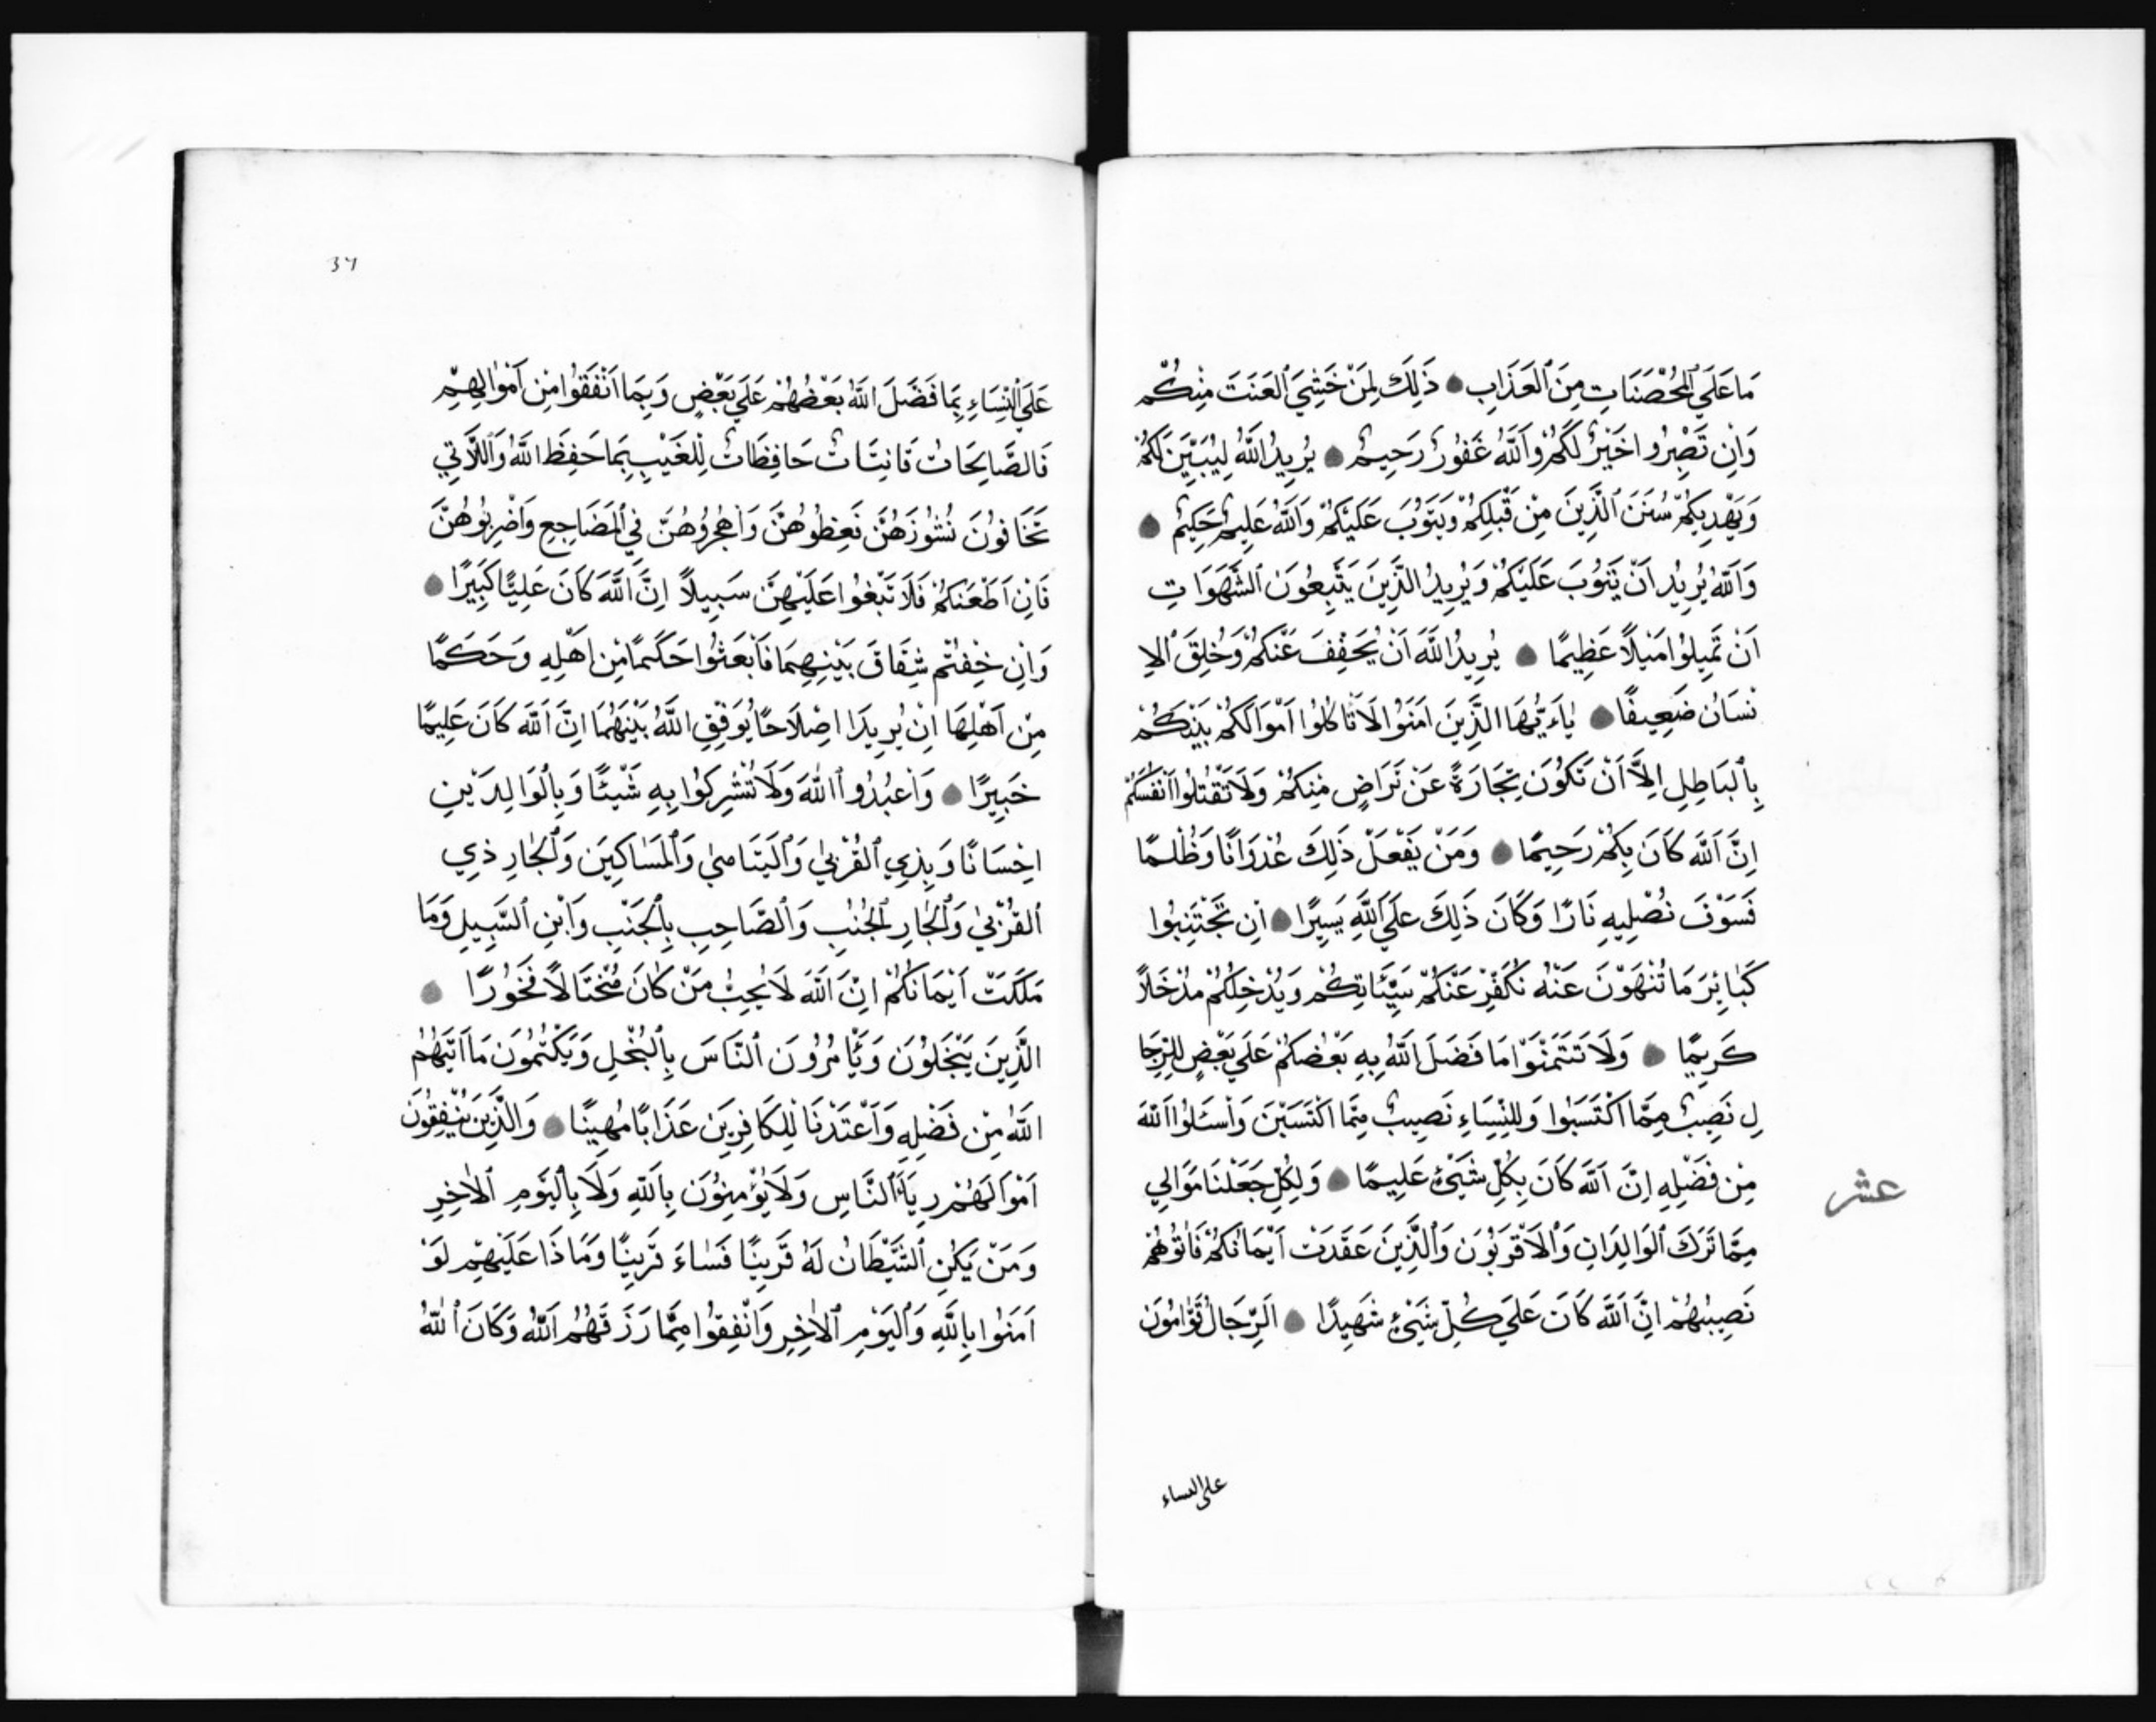 مَا عَلَي ٱلْمُحْصَنَاتِ مِنَ ٱلْعَذَابِ ذَلِكَ لِمَنْ خَشِيَ ٱلْعَنَتَ مِنْكُمْ
وَاِن تَصْبِرُوا خَيْرٌ لَكُمْ وَٱللَّهُ غَفُورٌ رَحِيمٌ يُرِيدُ ٱللَّهُ لِيُبَيِّنَ لَكُمْ
وَيَهْدِيكُمْ سُنَنَ ٱلَّذِينَ مِنْ قَبْلِكُمْ وَيَتُوبَ عَلَيْكُمْ وَٱللَّهُ عَلِيمٌ حَكِيمٌ
وَٱللَّهُ يُرِيدُ اَنْ يَتُوبَ عَلَيْكُمْ وَيُرِيدُ الَّذِينَ يَتَّبِعُونَ ٱلشَّهَوَاتِ
اَنْ تَمِيلُوا مَيْلًا عَظِيمًا يُرِيدُ اللَّهَ اَنْ يُخَفِّفَ عَنْكُمْ وَخُلِقَ ٱلاِ
نْسَانُ ضَعِيفًا يٰاَءَيُّهَا الَّذِينَ اٰمَنُوا لَا تَاْكُلُوا اَمْوَالَكُمْ بَيْنَكُمْ
بِٱلْبَاطِلِ اِلاَّ اَنْ تَكُونَ تِجَارَةً عَنْ تَرَاضٍ مِنْكُمْ وَلَا تَقْتُلُوا اَنْفُسَكُمْ
اِنَّ ٱللَّهَ كَانَ بِكُمْ رَحِيمًا وَمَنْ يَفْعَلْ ذَلِكَ عُدْوَانًا وَظُلْمًا
فَسَوْفَ نُصْلِيهِ نَارًا وَكَانَ ذَلِكَ عَلَي ٱللَّهِ يَسِيرًا اِن تَجْتَنِبُوا
كَبٰائِرَ مَا تُنْهَوْنَ عَنْهُ نُكَفِّرْ عَنْكُمْ سَيِّئَاتِكُمْ وَيُدْخِلْكُمْ مُدْخَلًا
كَرِيمًا وَلَا تَتَمَنَّوْا مَا فَضَلَ ٱللَّهُ بِهِ بَعْضَكُمْ عَلَي بَعْضٍ لِلرِّجَا
لِ نَصِيبٌ مِمَّا اكْتَسَبُوا وَلِلنِّسَاءِ نَصِيبٌ مِمَّا اكْتَسَبْنَ وَاسْـَٔلُوا ٱللَّهَ
مِنْ فَضْلِهِ اِنَّ ٱللَّهَ كَانَ بِكُلِّ شَيْئٍ عَلِيمًا وَلِكُلٍّ جَعَلْنَا مَوَالِي
مِمَّا تَرَكَ ٱلْوَالِدَانِ وَٱلْاَقْرَبُونَ وَٱلَّذِينَ عَقَدَتْ اَيْمَانُكُمْ فَاٰتُوهُمْ
نَصِيبَهُمْ اِنَّ ٱللَّهَ كَانَ عَلَي كُلِّ شَيْئٍ شَهِيدًا اَلرِّجَالُ قَوّٰامُونَ
عشر
على النساء
37
عَلَي ٱلْنِّسَاءِ بِمَا فَضَّلَ اللَّهُ بَعْضُهُمْ عَلَي بَعْضٍ وَبِمَا اَنْفَقُوا مِنْ اَمْوٰالِهِمْ
فَالصَّالِحَاتُ قَانِتَاتٌ حَافِظَاتٌ لِلْغَيْبِ بِمَا حَفِظَ اللَّهُ وَٱللَّاتِي
تَخَافُونَ نُشُوزَهُنَّ فَعِظُوهُنَّ وَاهْجُرُوهُنَّ فِي ٱلْمَضَاجِعِ وَاضْرِبُوهُنَّ
فَاِنْ اَطَعْنَكُمْ فَلَا تَبْغُوا عَلَيْهِنَّ سَبِيلاً اِنَّ اللَّهَ كَانَ عَلِيًّا كَبِيرًا
وَاِنْ خِفْتُمْ شِقَاقَ بَيْنِهِمَا فَابْعَثُوا حَكَمًا مِنْ اَهْلِهِ وَحَكَمًا
مِنْ اَهْلِهَا اِنْ يُرِيدَا اِصْلَاحًا يُوَفِّقِ اللَّهُ بَيْنَهُمَا اِنَّ ٱللَّهَ كَانَ عَلِيمًا
خَبِيرًا وَاعْبُدُوا ٱللَّهَ وَلَا تُشْرِكُوا بِهِ شَيْئًا وَبِالْوَالِدَيْنِ
اِحْسَانًا وَبِذِي ٱلْقُرْبيٰ وَٱلْيَتَاميٰ وَٱلْمَسٰاكِينَ وَٱلْجَارِ ذِي
ٱلْقُرْبيٰ وَٱلْجَارِ ٱلْجُنُبِ وَٱلصَّاحِبِ بِٱلْجَنْبِ وَٱبْنِ ٱلسَّبِيلِ وَمَا
مَلَكَتْ اَيْمَانُكُمْ اِنَّ ٱللَّهَ لَا يُحِبُّ مَنْ كَانَ مُخْتَالًا فَخُورًا
الَّذِينَ يَبْخَلُونَ وَيَاْمُرُونَ ٱلنَّاسَ بِٱلْبُخْلِ وَيَكْتُمُونَ مَا اٰتَيٰهُمُ
اللَّهُ مِنْ فَضْلِهِ وَاَعْتَدْنَا لِلْكَافِرِينَ عَذَابًا مُهِينًا وَالَّذِينَ يُنْفِقُونَ
اَمْوَالَهُمْ رِيَاءَ ٱلنَّاسِ وَلَا يُؤْمِنُونَ بِاللَّهِ وَلَا بِالْيَوْمِ ٱلْاٰخِرِ
وَمَنْ يَكُنِ ٱلشَّيْطَانُ لَهُ قَرِينًا فَسٰاءَ قَرِينًا وَمَا ذَا عَلَيْهِمْ لَوْ
اٰمَنُوا بِاللَّهِ وَٱلْيَوْمِ ٱلْاٰخِرِ وَانْفِقُوا مِمَّا رَزَقَهُمُ ٱللَّهُ وَكَانَ ٱللَّهُ